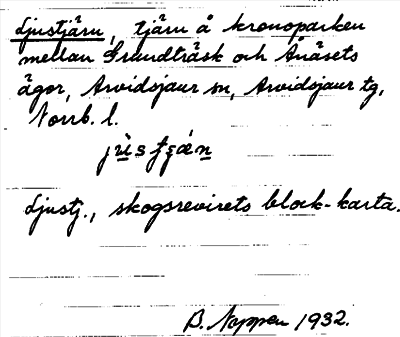 Ljustjärn, tjärn å kronoparken
mellan Grundträsk och Änäsets
ägor, Arvidsjaur sn, Arvidsjaur tg,
Norrb. l.
Ljustj., skogsrevirets block-karta.
B. Noppen 1932.